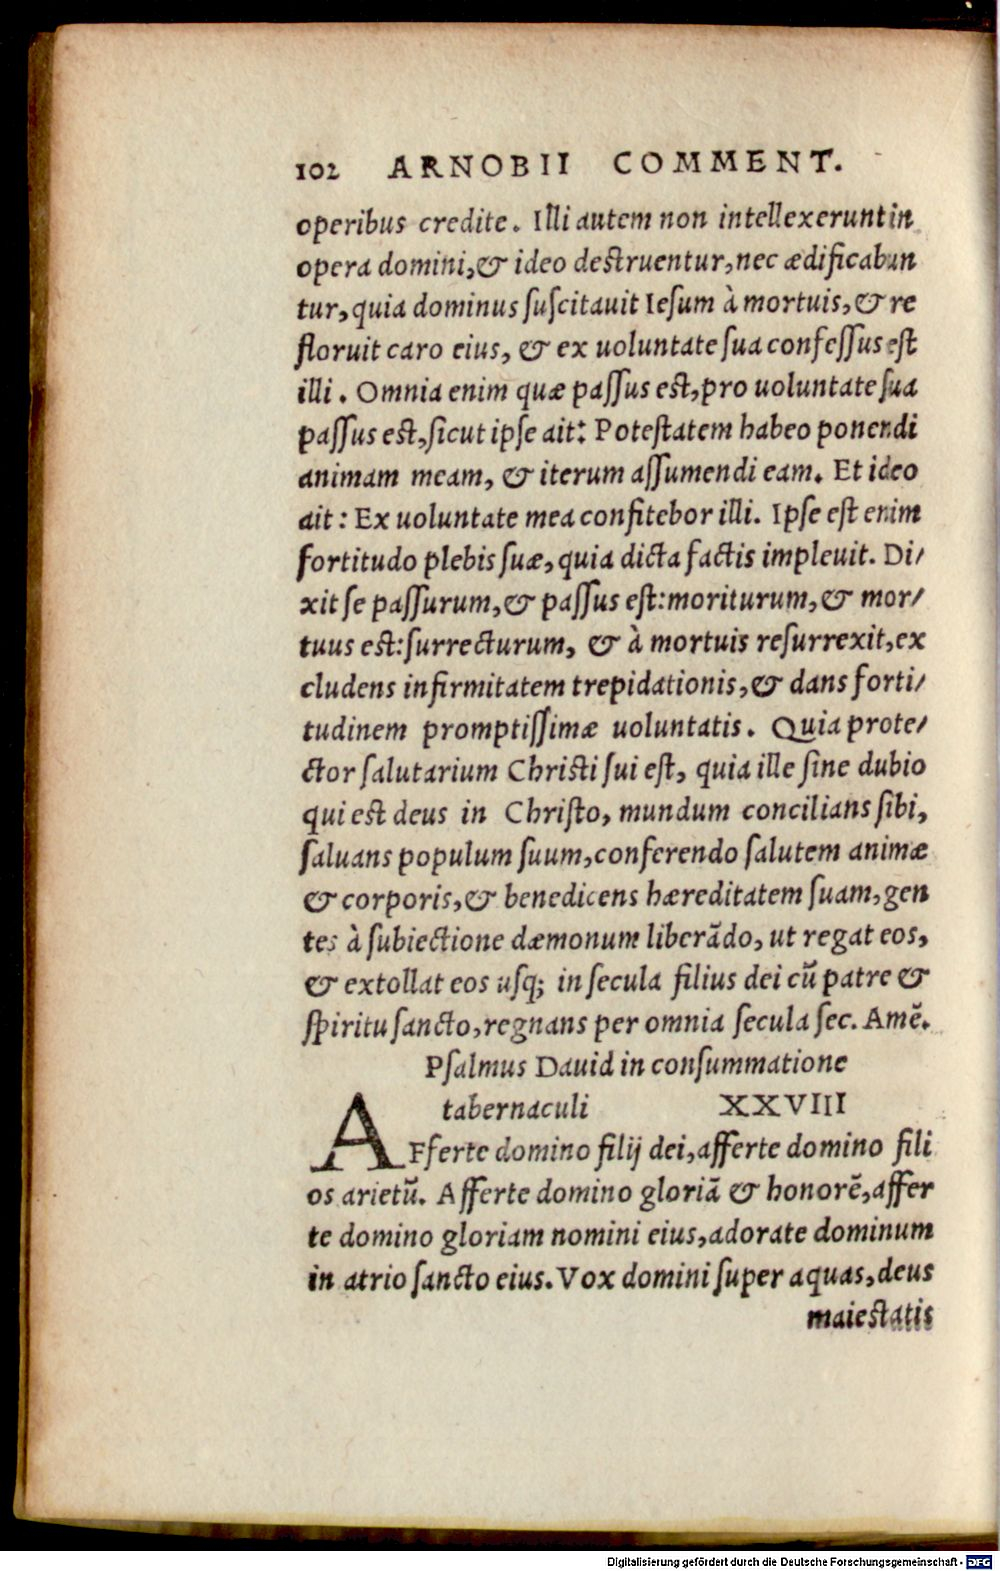 102 ARNOBII COMMENT.
operibus credite. Illi autem non intellexerunt in
opera domini, & ideo destruentur, nec ædificabun
tur, quia dominus ſuſcitauit Ieſum à mortuis, & re
floruit caro eius, & ex uoluntate ſua confeſſus eſt
illi. Omnia enim quæ paſſus eſt, pro uoluntate ſua
paſſus eſt, ſicut ipſe ait: Poteſtatem habeo ponendi
animam meam, & iterum aſſumendi eam. Et ideo
ait: Ex uoluntate mea confitebor illi. Ipſe eſt enim
fortitudo plebis ſuæ, quia dicta factis impleuit. Di/
xit ſe paſſurum, & paſſus eſt: moriturum, & mor/
tuus eſt: ſurrecturum, & à mortuis reſurrexit, ex
cludens infirmitatem trepidationis, & dans forti/
tudinem promptiſſimæ uoluntatis. Quia prote/
ctor ſalutarium Chriſti ſui eſt, quia ille ſine dubio
qui eſt deus in Chriſto, mundum concilians ſibi,
ſaluans populum ſuum, conferendo ſalutem animæ
& corporis, & benedicens hæreditatem ſuam, gen
tes à ſubiectione dæmonum liberādo, ut regat eos,
& extollat eos uſq; in ſecula filius dei cū patre &
ſpiritu ſancto, regnans per omnia ſecula ſec. Amē.
Pſalmus Dauid in conſummatione
tabernaculi XXVIII
AFferte domino filij dei, afferte domino fili
os arietū. Afferte domino gloriā & honorē, affer
te domino gloriam nomini eius, adorate dominum
in atrio ſancto eius. Vox domini ſuper aquas, deus
maieſtatis
Digitalisierung gefördert durch die Deutsche Forschungsgemeinschaft - DFG